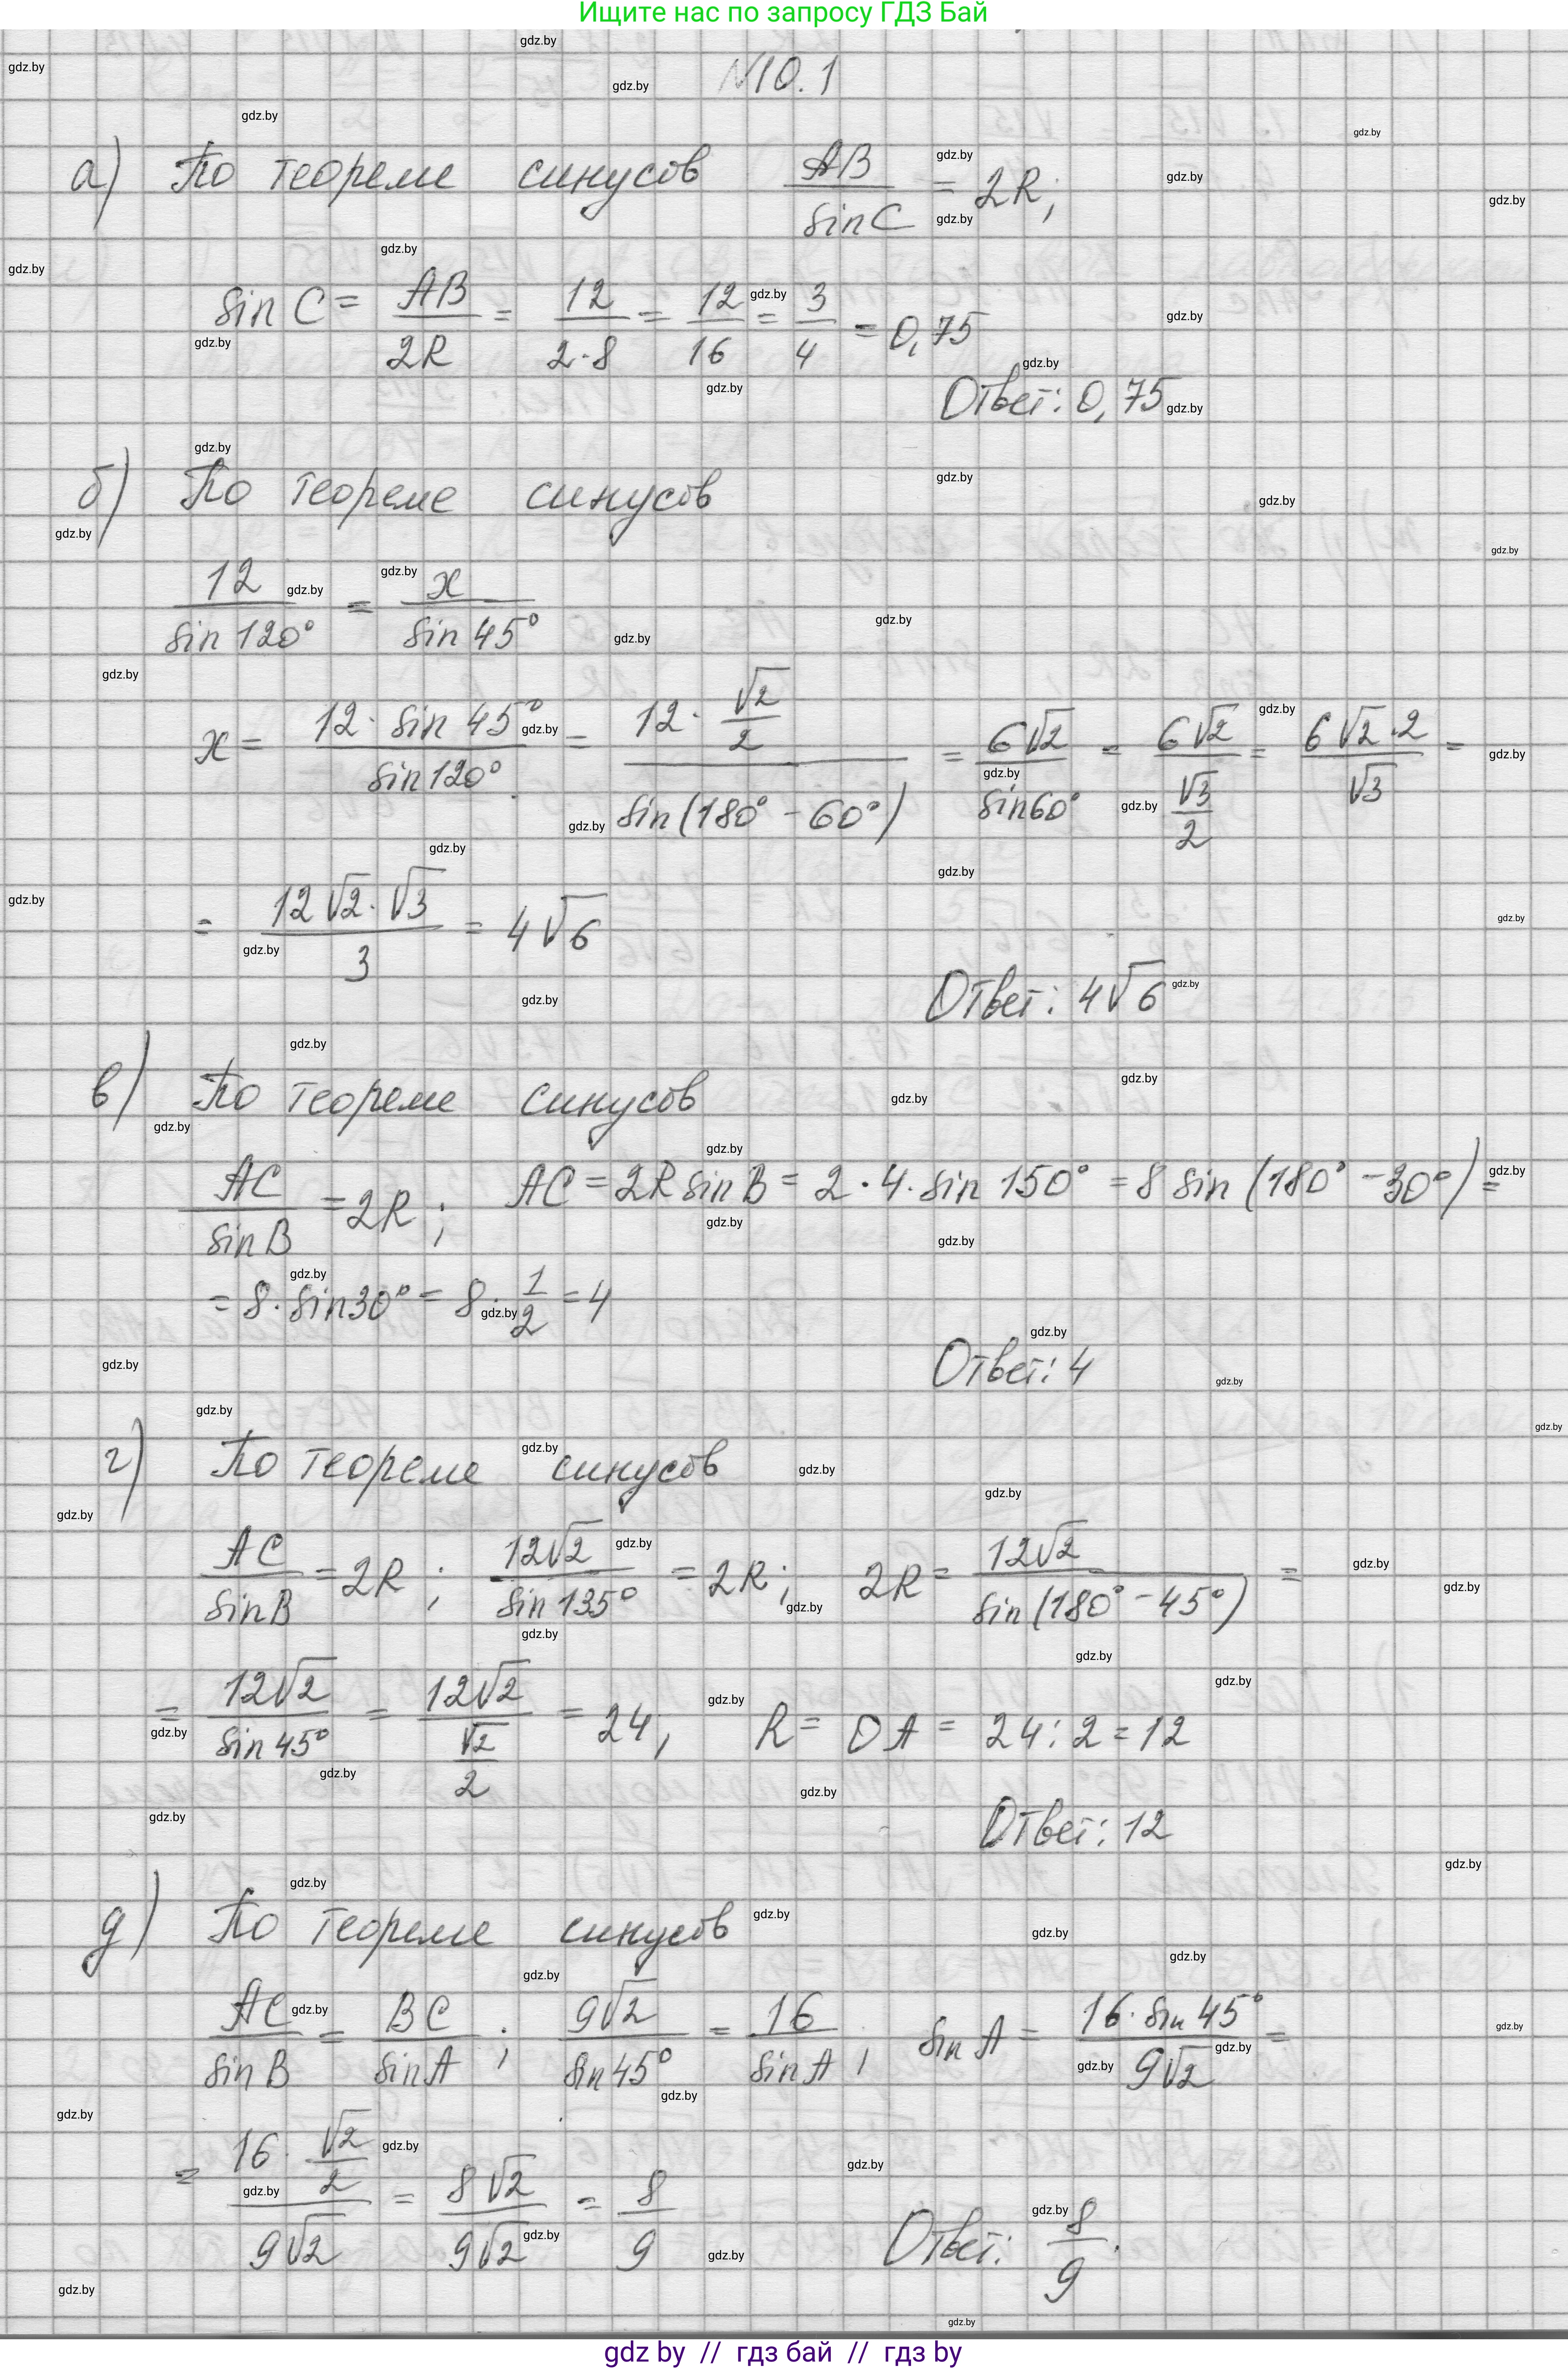 Ищите нас по запросу ГДЗ Бай
№10.1
а) По теореме синусов AB/sinC = 2R;
sin C = AB/2R = 12/2·8 = 12/16 = 3/4 = 0,75
Ответ: 0,75
б) По теореме синусов
12/sin120° = x/sin45°
x = 12·sin45°/sin120° = 12·√2/2/sin(180°-60°) = 6√2/sin60° = 6√2/√3/2 = 6√2·2/√3 =
= 12√2·√3/3 = 4√6
Ответ: 4√6
в) По теореме синусов
AC/sinB = 2R; AC = 2R sinB = 2·4·sin150° = 8 sin(180°-30°) =
= 8·sin30° = 8·1/2 = 4
Ответ: 4
г) По теореме синусов
AC/sinB = 2R; 12√2/sin135° = 2R; 2R = 12√2/sin(180°-45°) =
= 12√2/sin45° = 12√2/√2/2 = 24, R = OA = 24:2 = 12
Ответ: 12
д) По теореме синусов
AC/sinB = BC/sinA; 9√2/sin45° = 16/sinA; sinA = 16·sin45°/9√2 =
= 16·√2/2/9√2 = 8√2/9√2 = 8/9
Ответ: 8/9.
gdz by // гдз бай // гдз by